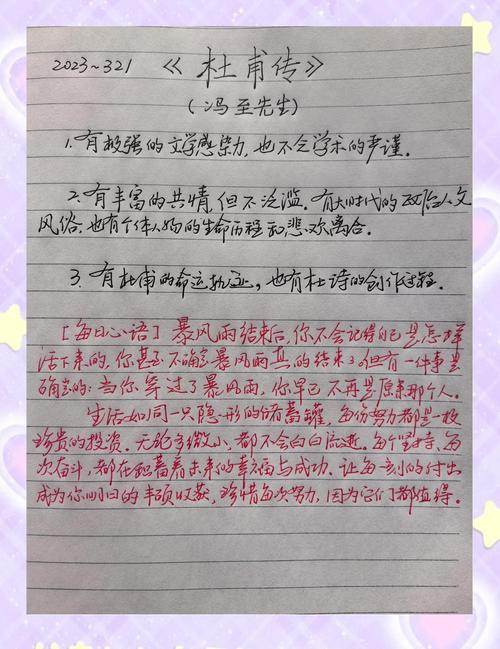 2023~321 《杜甫传》
(冯至先生)
1. 有极强的文学感染力,也不乏学术的严谨。
2. 有丰富的共情,但不泛滥。有大时代的政治人文
风俗,也有个体人物的生命历程和悲欢离合。
3. 有杜甫的命运轨迹,也有杜诗的创作过程。
[每日心语] 暴风雨结束后,你不会记得自己是怎样
活下来的,你甚至不确定暴风雨真的结束了,但有一件事是
确定的:当你穿过了暴风雨,你早已不再是原来那个人。
生活如同一只隐形的储蓄罐,每份努力都是一枚
珍贵的投资。无论多微小,都不会白白流逝。每个坚持,每
次奋斗,都在积蓄着未来的幸福与成功。让每一刻的付出
成为你归的丰硕收获,珍惜每次努力,因为它们都值得。